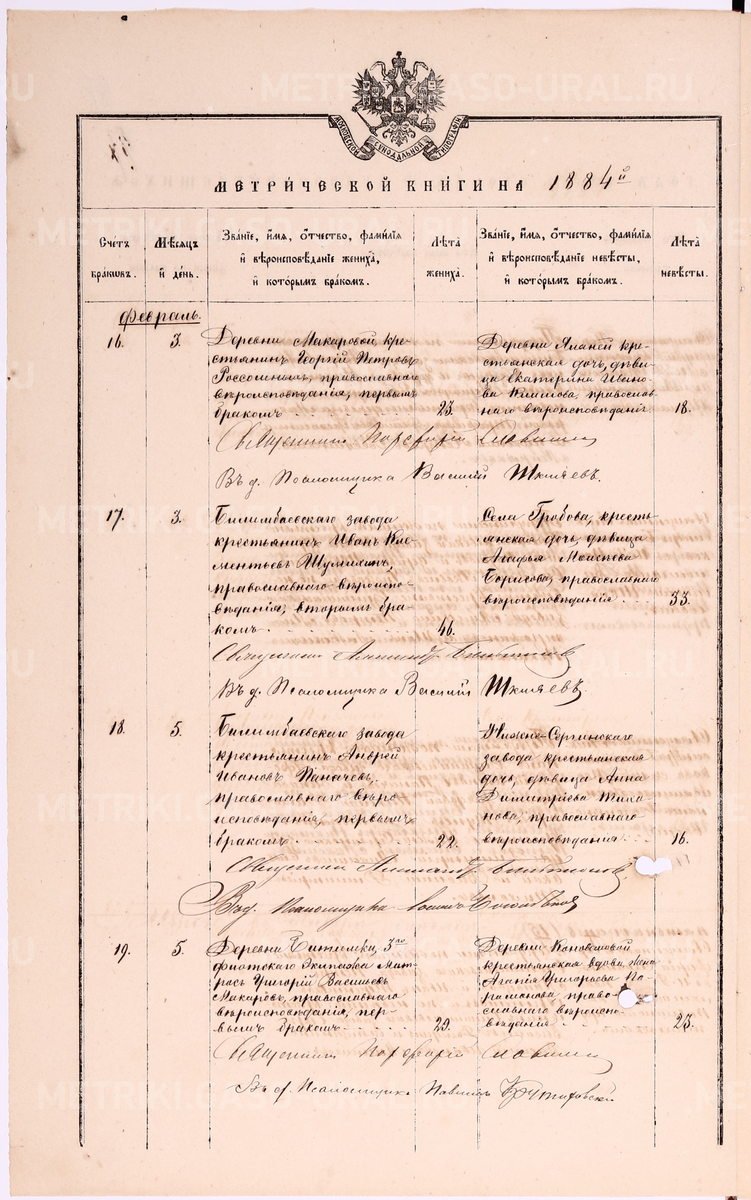 МОСКОВСКОЙ СѴНОДАЛЬНОЙ ТИПОГРАФІИ
МЕТРИ́ЧЕСКОЙ КНИ́ГИ НА 1884й
Счетъ браковъ.
Мѣсяцъ и день.
Званіе, имя, отчество, фамилія и вѣроисповѣданіе жениха, и которымъ бракомъ.
Лѣта жениха.
Званіе, имя, отчество, фамилія и вѣроисповѣданіе невѣсты, и которымъ бракомъ.
Лѣта невѣсты.
Февраль.
16.
3.
Деревни Макаровой, кре-
стьянинъ Георгій Петровъ
православнаго
вѣроисповѣданія, первымъ
бракомъ
23.
Деревни кре-
стьянская дочь, дѣви-
ца Екатерина Ивано-
ва православ-
наго вѣроисповѣданія
18.
Священникъ Порфирій Славнинъ
Въ д. Псаломщика Василій Шкляевъ.
17.
3.
Билимбаевскаго завода
крестьянинъ Иванъ Кле-
ментьевъ Шумихинъ,
православнаго вѣроиспо-
вѣданія, вторымъ бра-
комъ
46.
Села Гробова, кресть-
янская дочь, дѣвица
Агафья Моисѣева
Борисова, православнаго
вѣроисповѣданія
33.
Священникъ Александръ
Въ д. Псаломщика Василій Шкляевъ
18.
5.
Билимбаевскаго завода
крестьянинъ Андрей
Ивановъ Паначевъ,
православнаго вѣро-
исповѣданія, первымъ
бракомъ
22.
Нижне-Сергинскаго
завода крестьянская
дочь, дѣвица Анна
Димитріева Тиха-
нова, православнаго
вѣроисповѣданія
16.
Священникъ Александръ
Въ д. Псаломщика
19.
5.
Деревни Битимки, 3го
флотскаго Экипажа Мат-
росъ Григорій Васильевъ
Макаровъ, православнаго
вѣроисповѣданія, пер-
вымъ бракомъ
29.
Деревни Коноваловой
крестьянская вдова, жена
Агапія Григорьева Па-
рамонова, право-
славнаго вѣроиспо-
вѣданія
23.
Священникъ Порфирій Славнинъ
Въ д. Псаломщика Павелъ